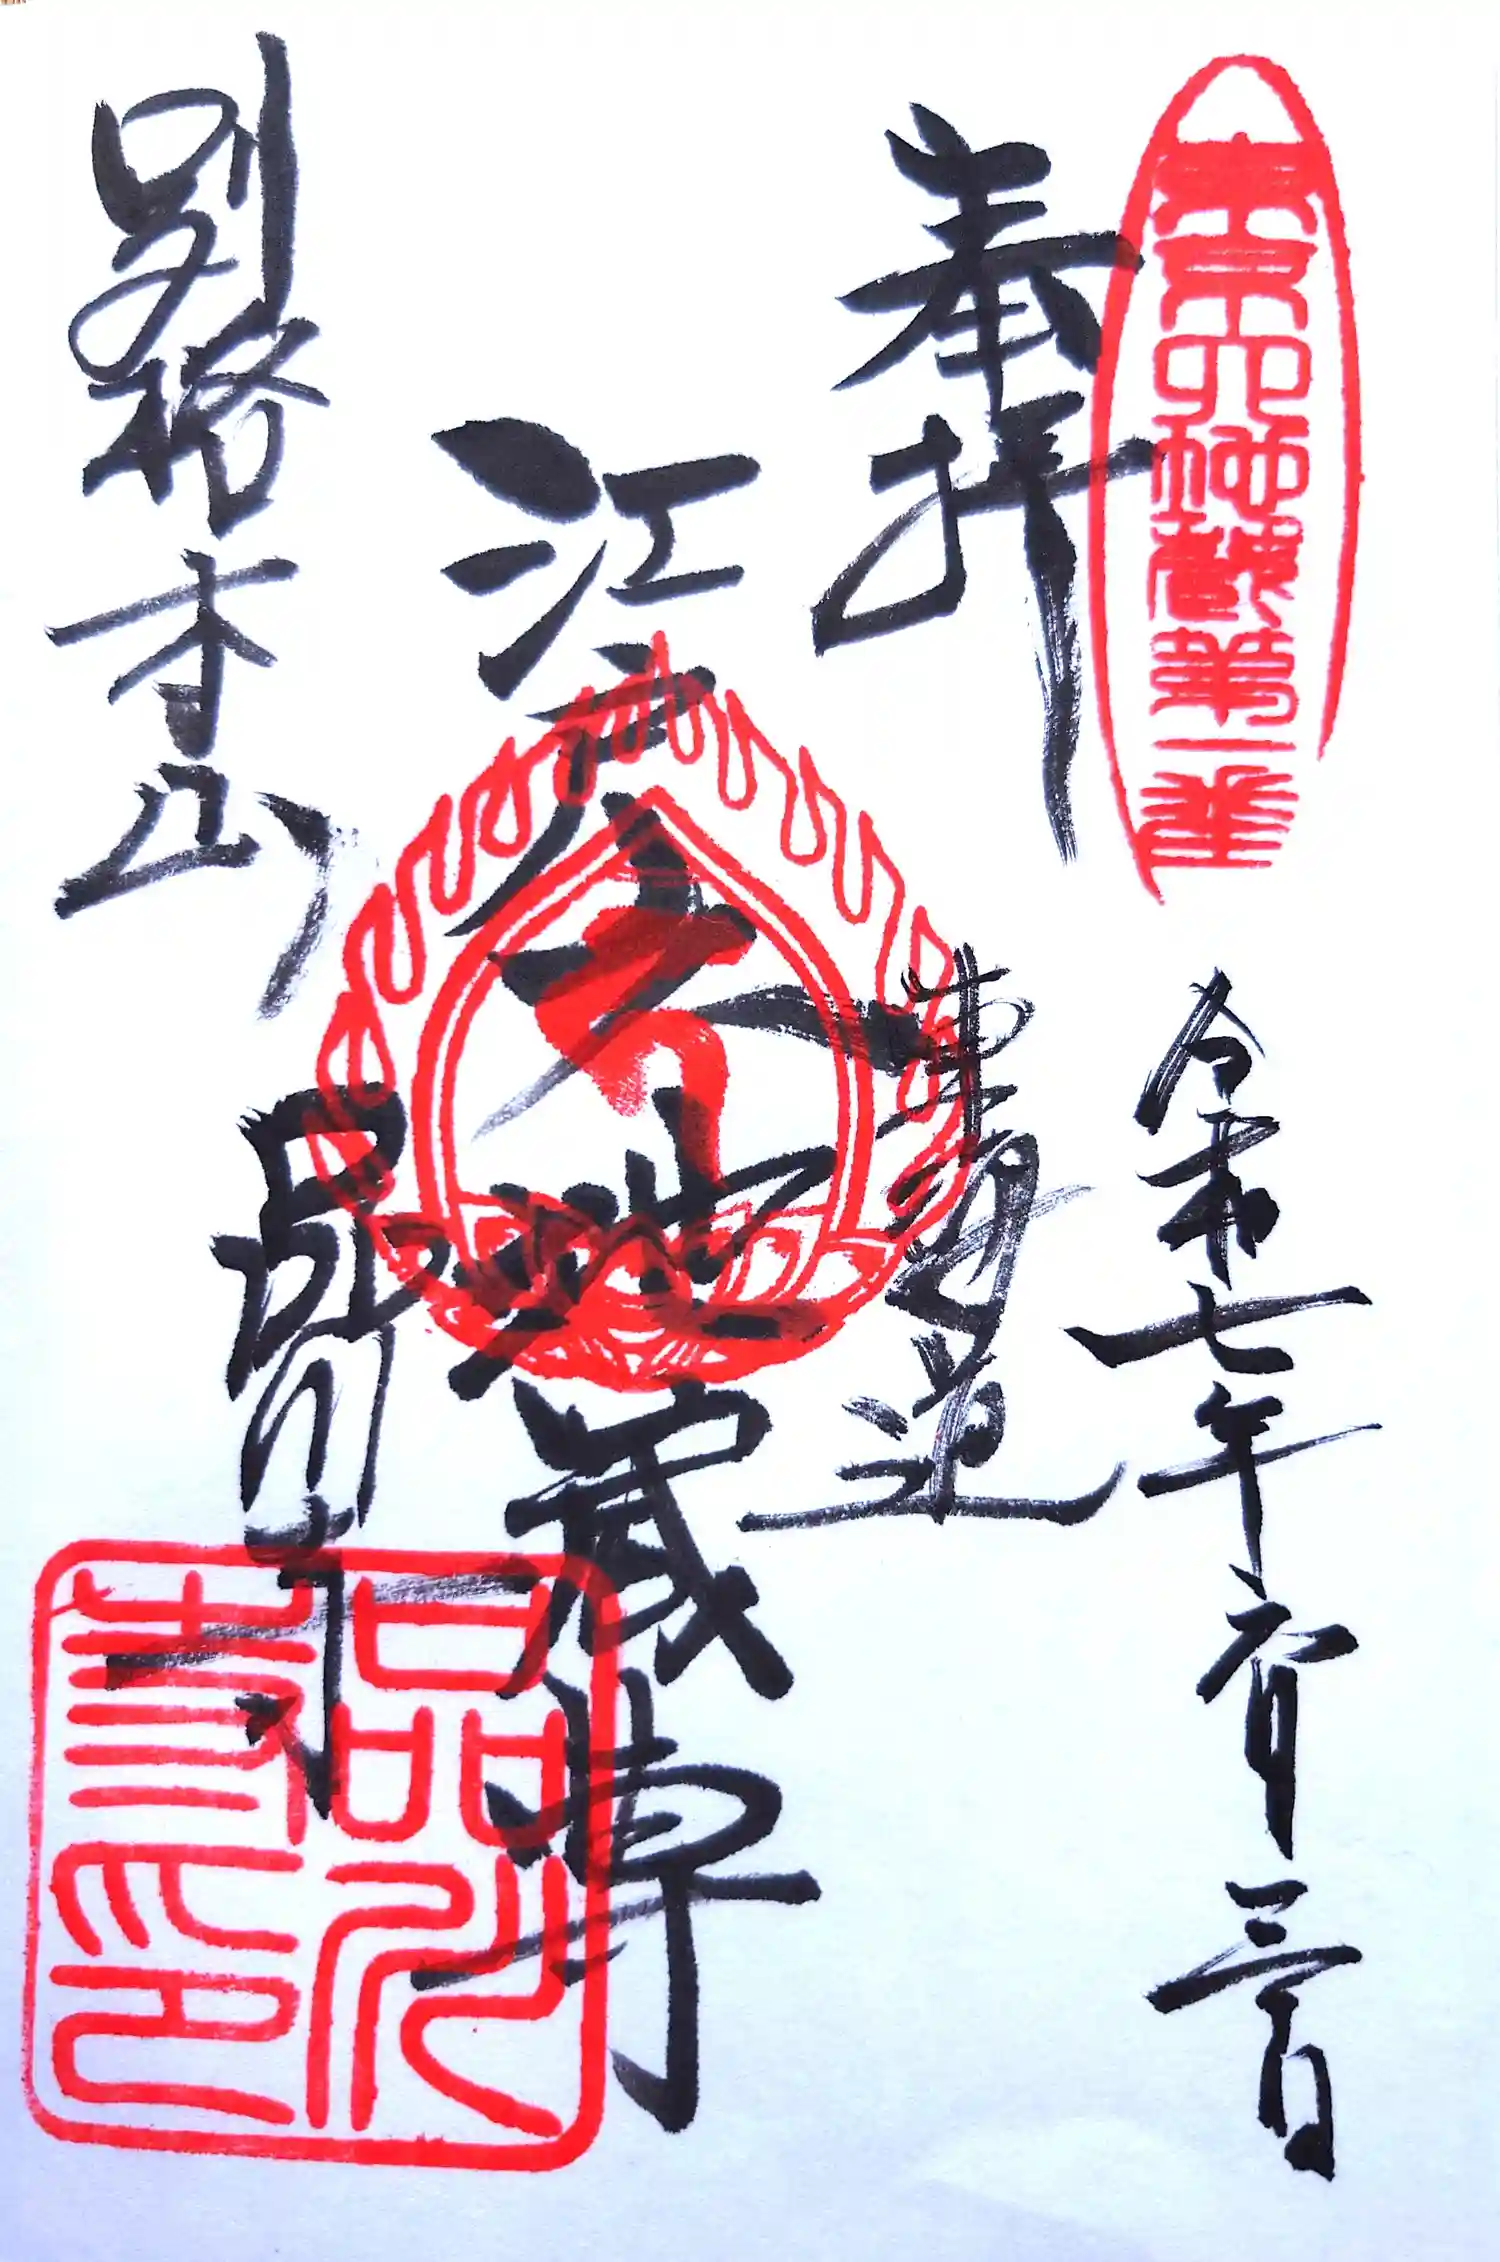 東京六地蔵第一番
奉拝
令和七年六月三日
東海道
江戸六地蔵尊
別格本山
品川寺
品川寺印